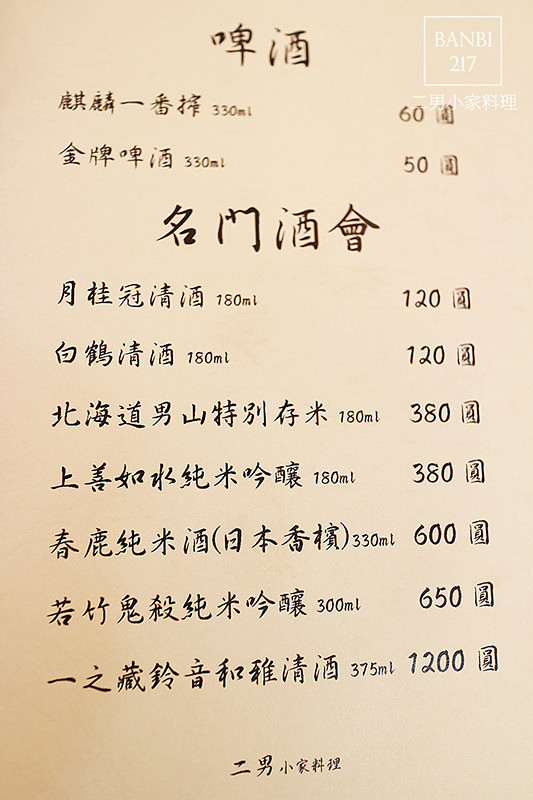 啤酒
BANBI
217
二男小家料理
麒麟一番搾 330ml 60 圓
金牌啤酒 330ml 50 圓
名門酒會
月桂冠清酒 180ml 120 圓
白鶴清酒 180ml 120 圓
北海道男山特別存米 180ml 380 圓
上善如水純米吟釀 180ml 380 圓
春鹿純米酒(日本香檳)330ml 600 圓
若竹鬼殺純米吟釀 300ml 650 圓
一之藏鈴音和雅清酒 375ml 1200 圓
二男小家料理